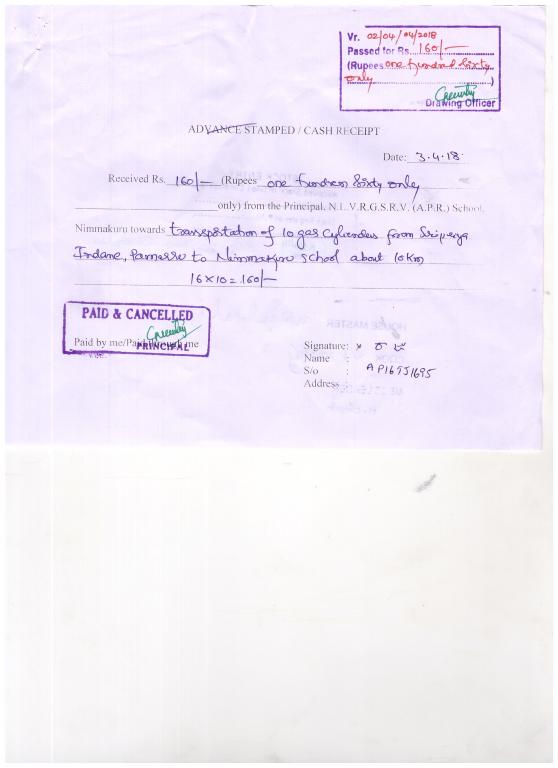 Vr. 02/04/04/2018
Passed for Rs. 160/-
(Rupees one hundred Sixty
only)
Drawing Officer
ADVANCE STAMPED / CASH RECEIPT
Date: 3.4.18
Received Rs. 160/- (Rupees one hundred Sixty only
only) from the Principal, N.T.V.R.G.S.R.V. (A.P.R.) School,
Nimmakuru towards transportation of 10 gas Cylenders from
Indane, to Nimmakuru School about 10 Km
16 X 10 = 160/-
PAID & CANCELLED
Paid by me/Paid me
PRINCIPAL
Signature: x
Name :
S/o : AP16TJ1695
Address :